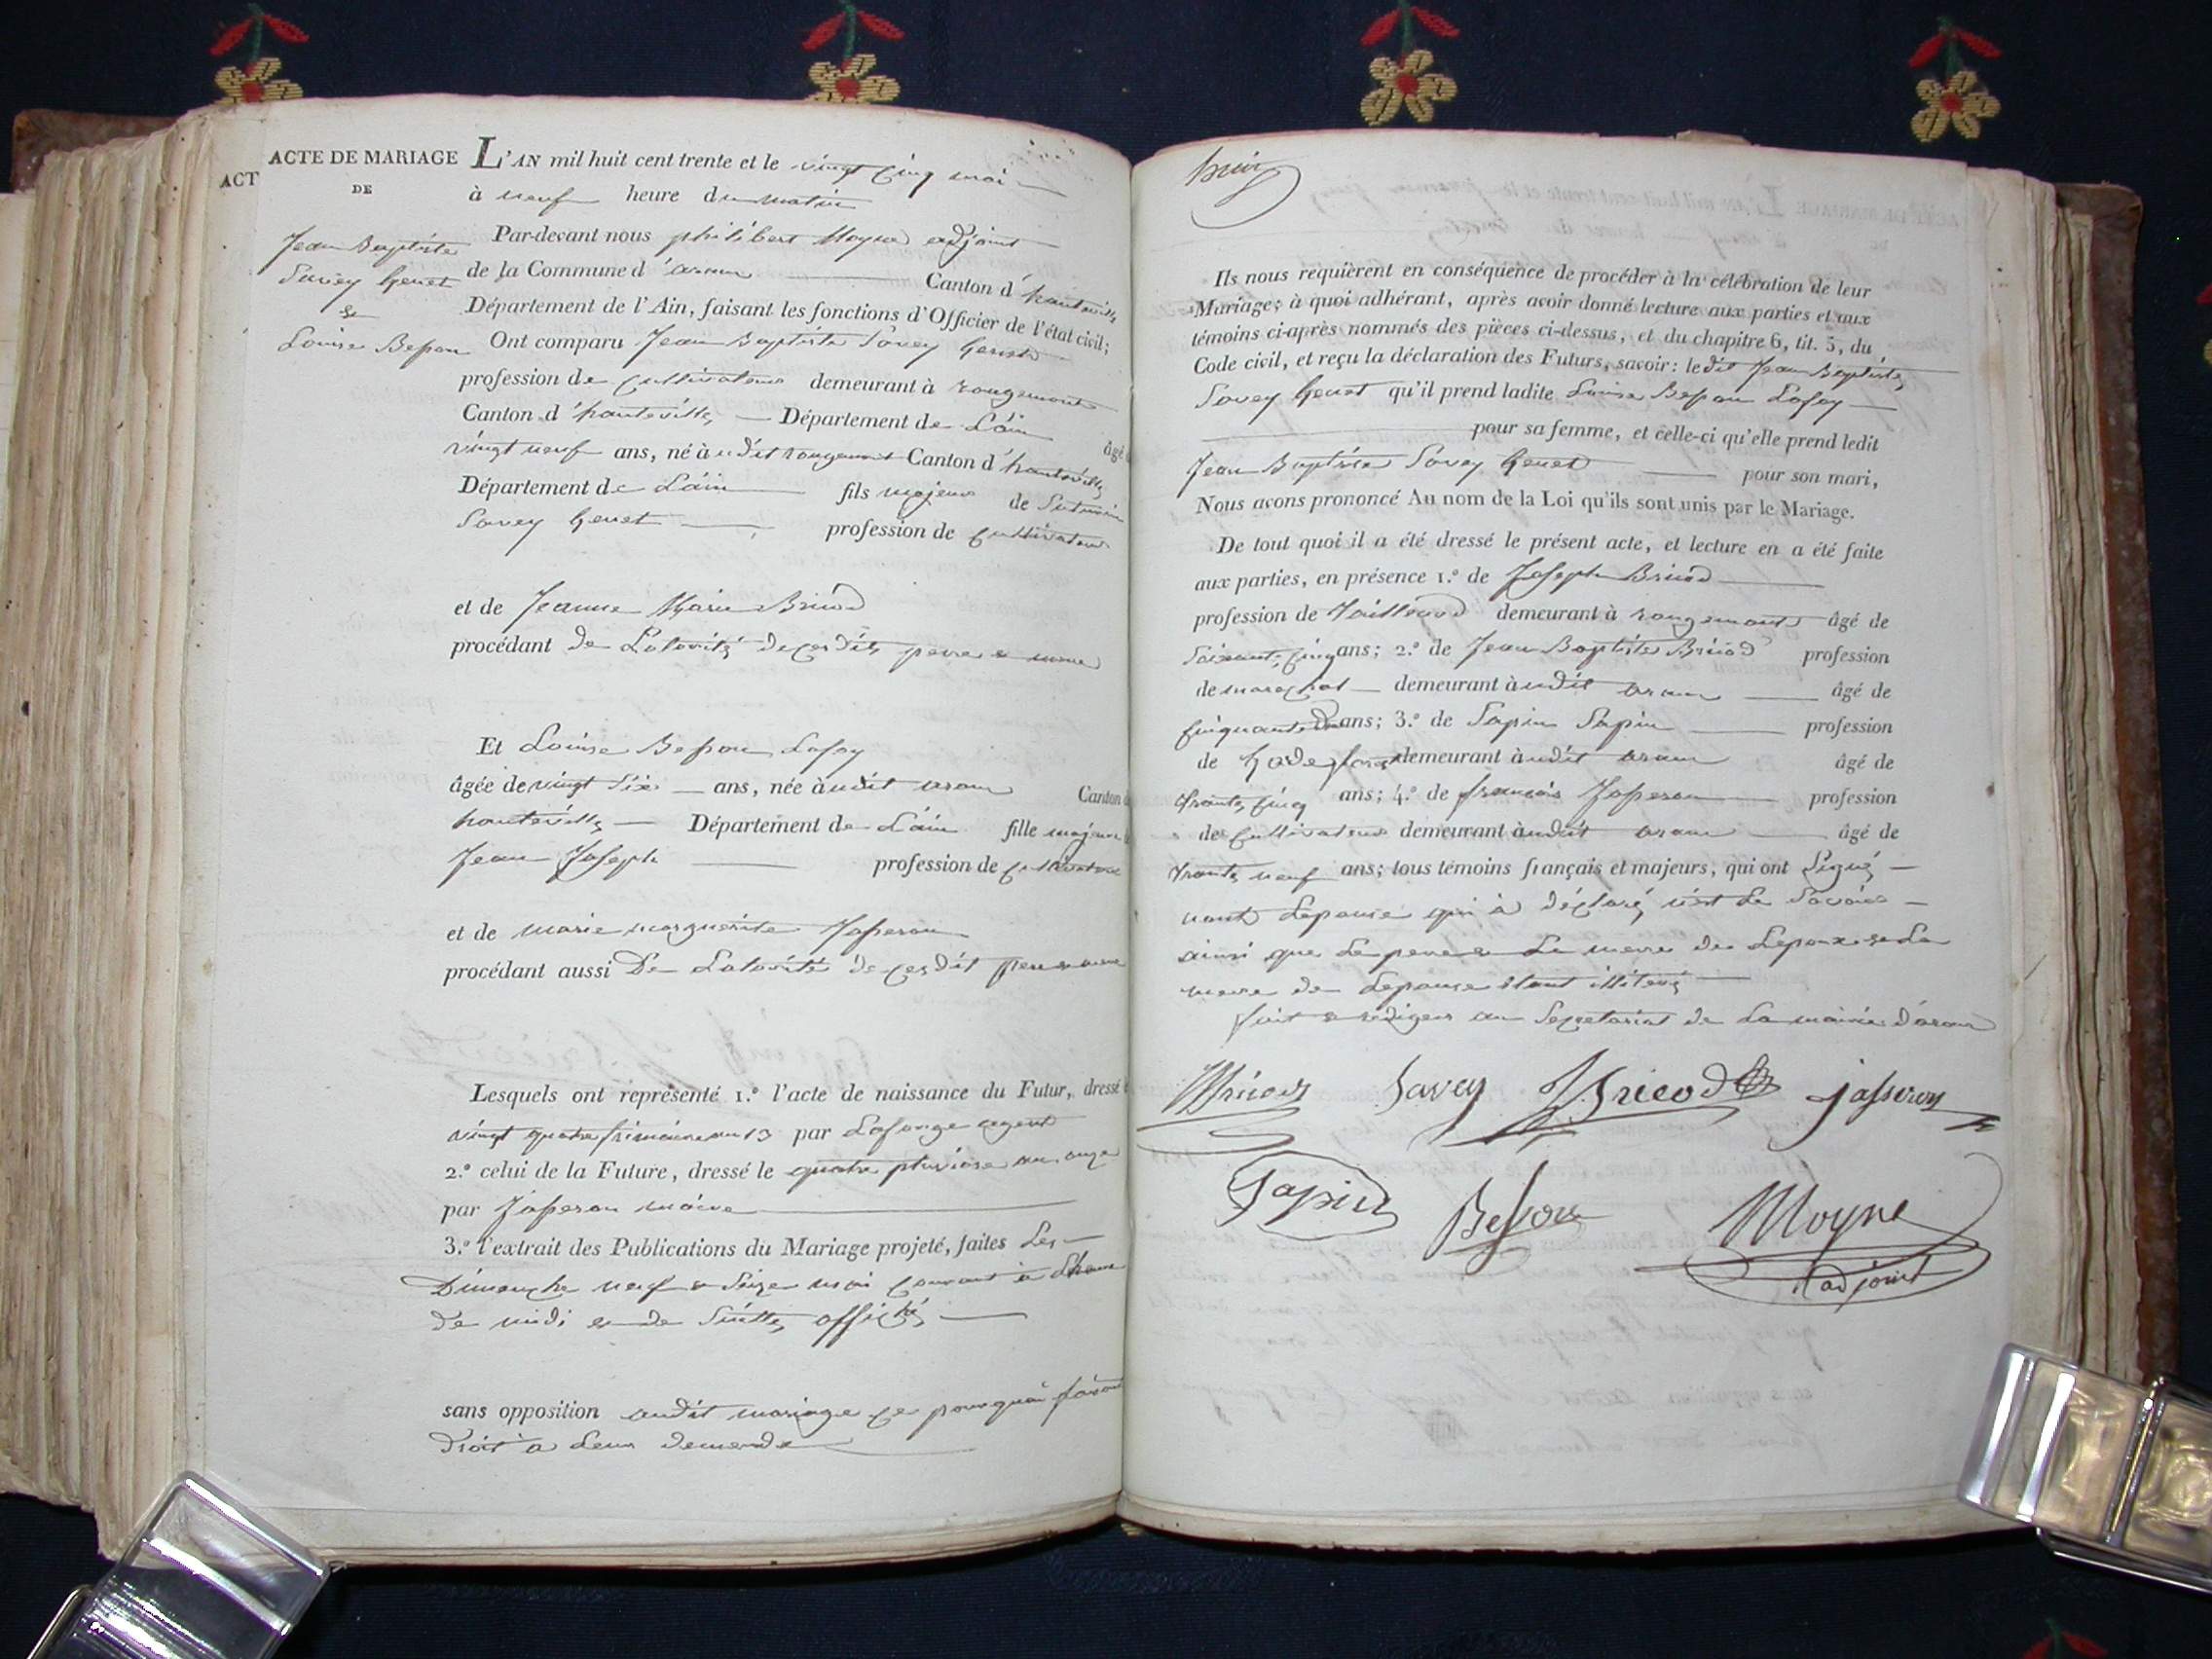 ACTE DE MARIAGE
ACT
DE
Jean Baptiste
Savey Genet
&
Louise Besson
L'AN mil huit cent trente et le vingt cinq mai
à neuf heure du matin
Par-devant nous philibert Moyne adjoint
de la Commune d'aranc Canton d'hauteville
Département de l'Ain, faisant les fonctions d'Officier de l'état civil;
Ont comparu Jean Baptiste Savey Genet
profession de cultivateur demeurant à rougemont
Canton d'hauteville Département de L'ain âgé d
vingt neuf ans, né à udit rougemont Canton d'hauteville
Département de L'ain fils majeur de
Savey Genet profession de cultivateur
et de Jeanne Marie Bricod
procédant de Lotorité de ces dits pere & mere
Et Louise Besson Lafay
âgée de vingt six ans, née à udit aranc Canton d
hauteville Département de L'ain fille majeure
Jean Joseph profession de cultivateur
et de marie marguerite Josseron
procédant aussi De Lotorité de ces dit pere & mere
Lesquels ont représenté 1.º l'acte de naissance du Futur, dressé
vingt quatre frimaire an 13 par Lafonge agent
2.º celui de la Future, dressé le quatre pluviose an onze
par Josseron maire
3.º l'extrait des Publications du Mariage projeté, faites Les
Dimanche neuf & Seize mai courant à Lheure
de midi & de Suitte affiché
sans opposition audit mariage ce pourquoi faisant
droit a Leur demande
huit
Ils nous requièrent en conséquence de procéder à la célébration de leur
Mariage; à quoi adhérant, après avoir donné lecture aux parties et aux
témoins ci-après nommés des pièces ci-dessus, et du chapitre 6, tit. 5, du
Code civil, et reçu la déclaration des Futurs, savoir: ledit Jean Baptiste
Savey Genet qu'il prend ladite Louise Besson Lafay
pour sa femme, et celle-ci qu'elle prend ledit
Jean Baptiste Savey Genet pour son mari,
Nous avons prononcé Au nom de la Loi qu'ils sont unis par le Mariage.
De tout quoi il a été dressé le présent acte, et lecture en a été faite
aux parties, en présence 1.º de Joseph Bricod
profession de Tailleur demeurant à rougemont âgé de
Soixante, cinq ans; 2.º de Jean Baptiste Bricod profession
de marechal demeurant à udit aranc âgé de
cinquante ans; 3.º de Sapin Sapin profession
de Garde forest demeurant à udit aranc âgé de
trente, cinq ans; 4.º de francois Josseron profession
de Cultivateur demeurant à udit aranc âgé de
trente neuf ans; tous témoins français et majeurs, qui ont Signé
Lepouse qui a déclaré
ainsi que Le pere & La mere de Lepoux & La
mere de Lepouse étant illiteré
fait & rediger au Secretariat de La mairie d'aranc
Bricod Savey JBricod josseron
Sapin Besson Moyne
adjoint